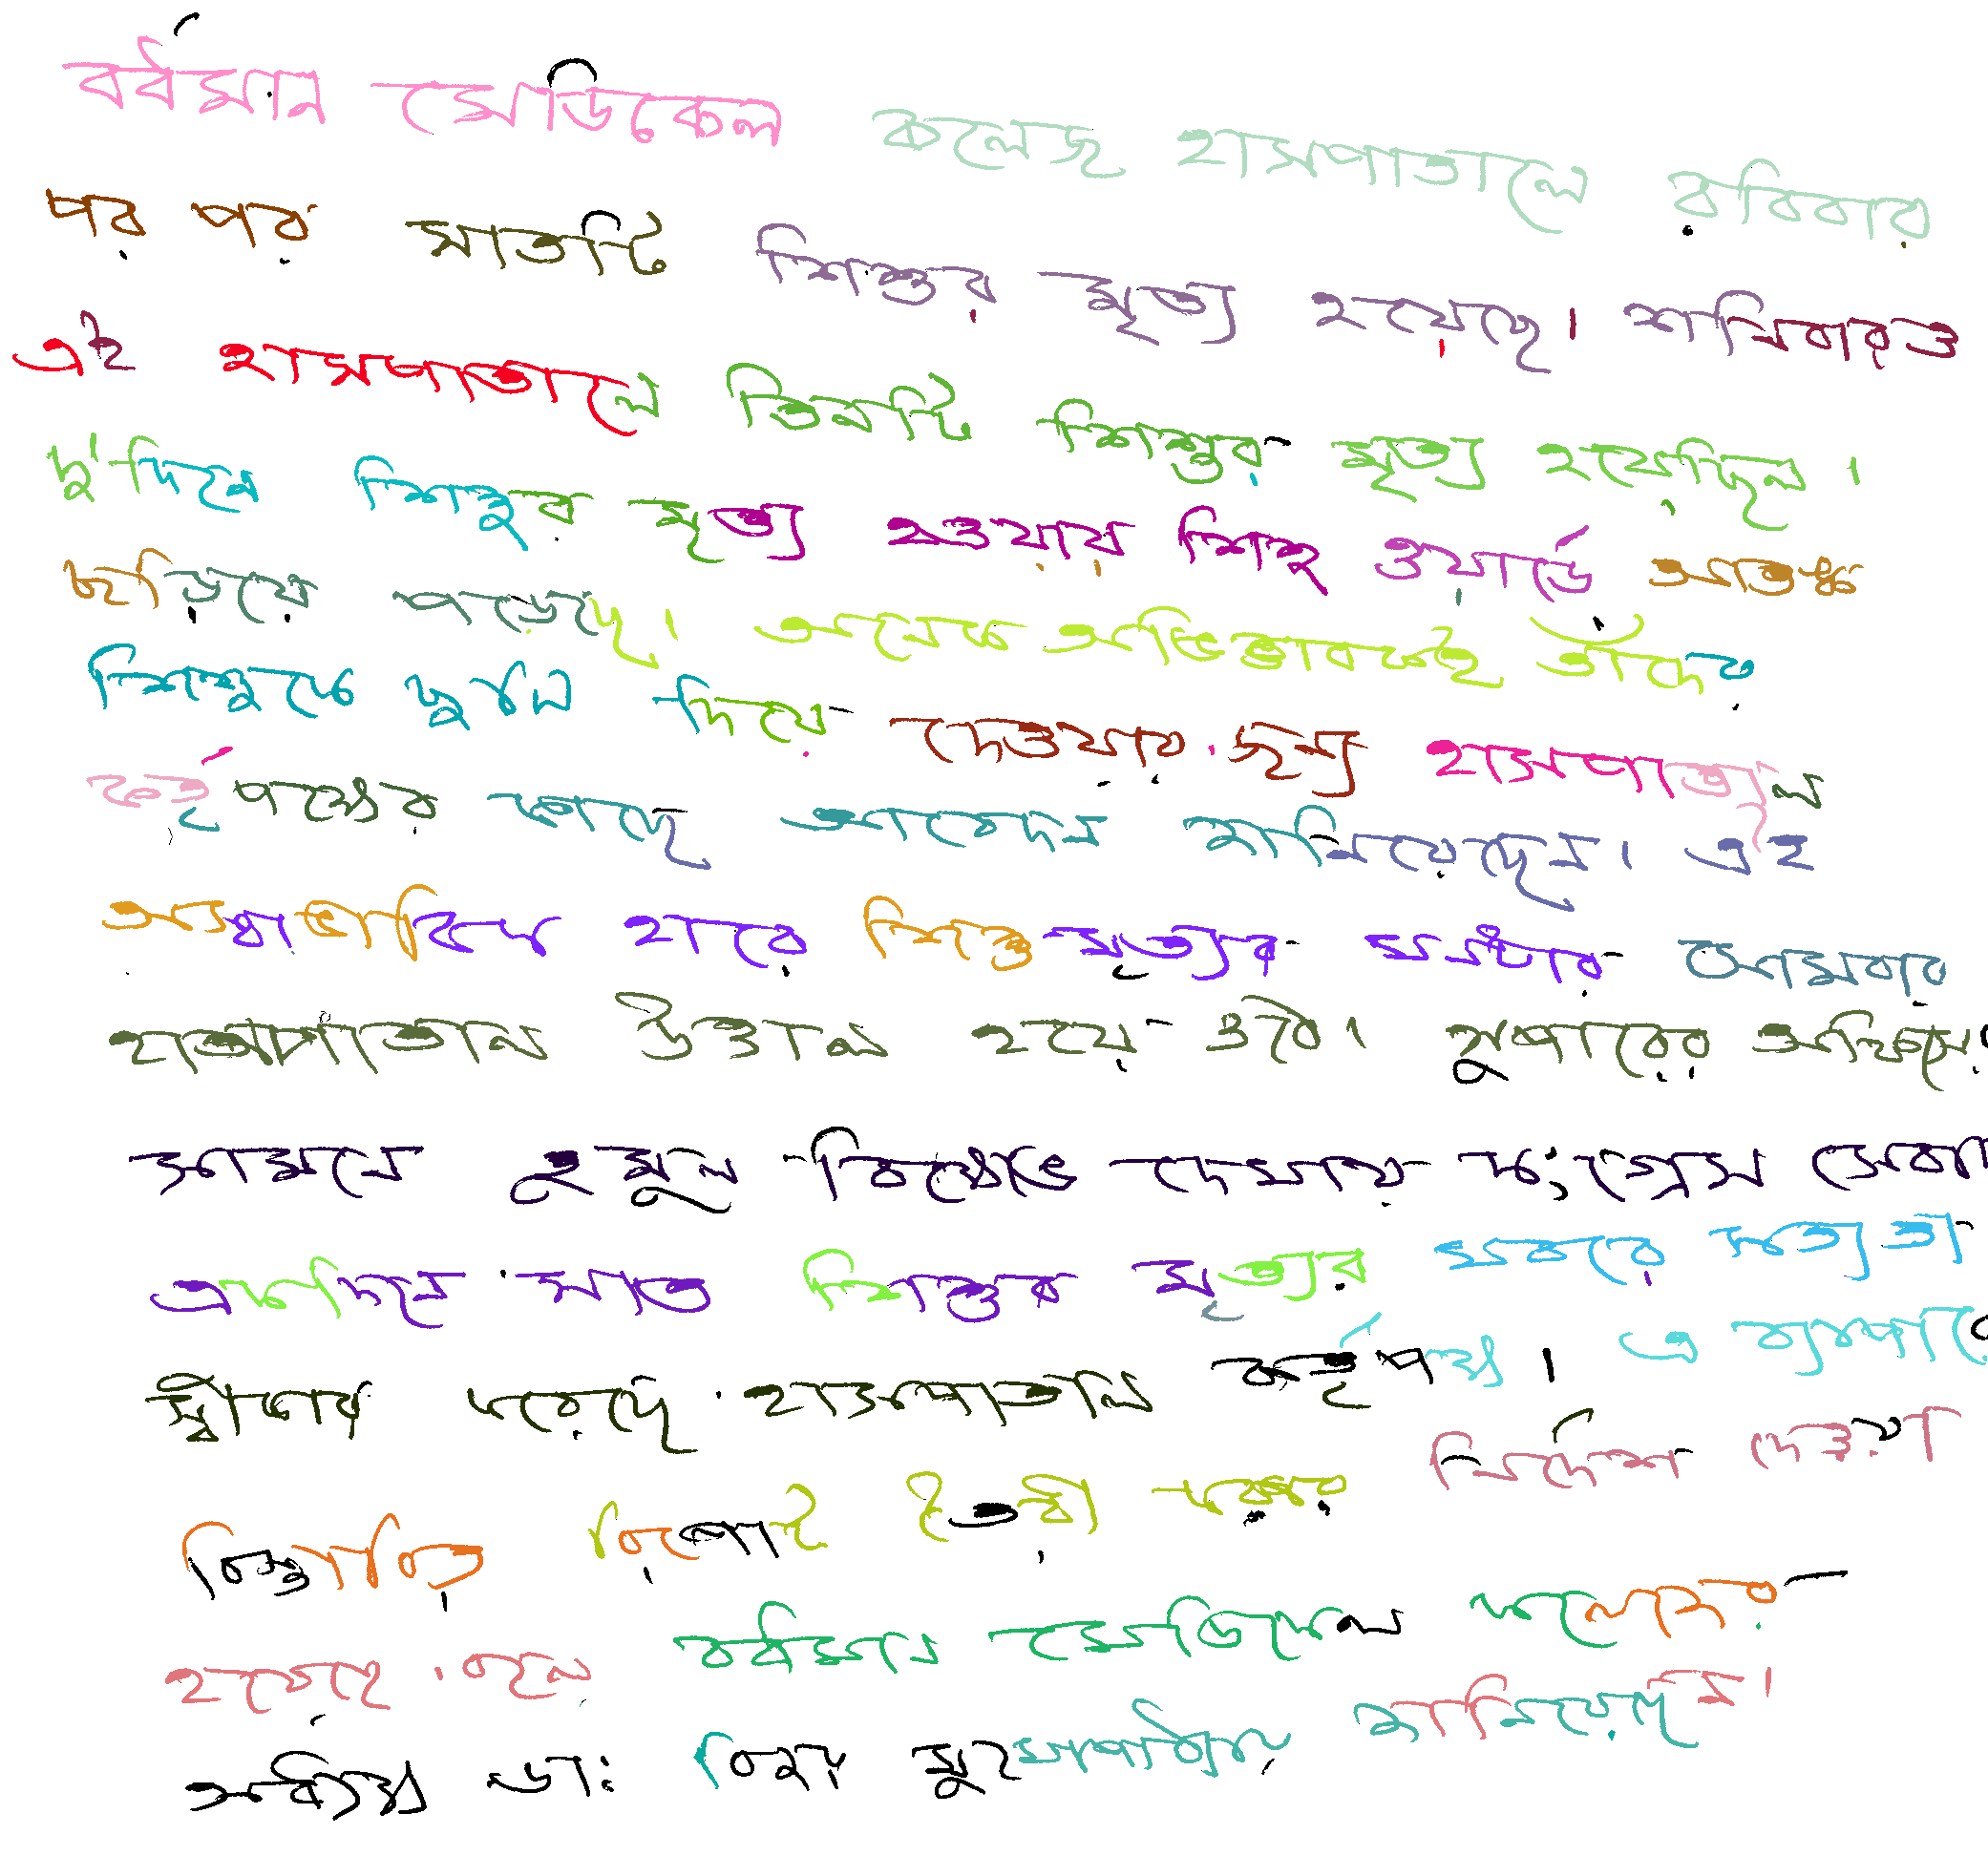 বর্ধমান মেডিকেল কলেজ হাসপাতালে রবিবার
পর পর সাতটি শিশুর মৃত্যু হয়েছে। শনিবারও
এই হাসপাতালে তিনটি শিশুর মৃত্যু হয়েছিল।
দু'দিনে শিশুর মৃত্যু হওয়ায় শিশু ওয়ার্ডে আতঙ্ক
ছড়িয়ে পড়েছে। অনেক অভিভাবকই তাঁদের
শিশুকে ছুটি দিয়ে দেওয়ার জন্য হাসপাতাল
কর্তৃপক্ষের কাছে আবেদন জানিয়েছেন। এই
অস্বাভাবিক হারে শিশু মৃত্যুর ঘটনার সোমবার
হাসপাতাল উত্তাল হয়ে ওঠে। সুপারের অফিসের
সামনে তুমুল বিক্ষোভ দেখায় কংগ্রেস সেবা
একদিনে সাত শিশুর মৃত্যুর খবরের সত্যতা
স্বীকার করেছে হাসপাতাল কর্তৃপক্ষ। এ ব্যাপারে
বিস্তারিত রিপোর্ট তৈরী করার নির্দেশ দেওয়া
হয়েছে বলে বর্ধমান মেডিকেল কলেজের
অধ্যক্ষ ডাঃ বিজয় মুখোপাধ্যায় জানিয়েছেন।